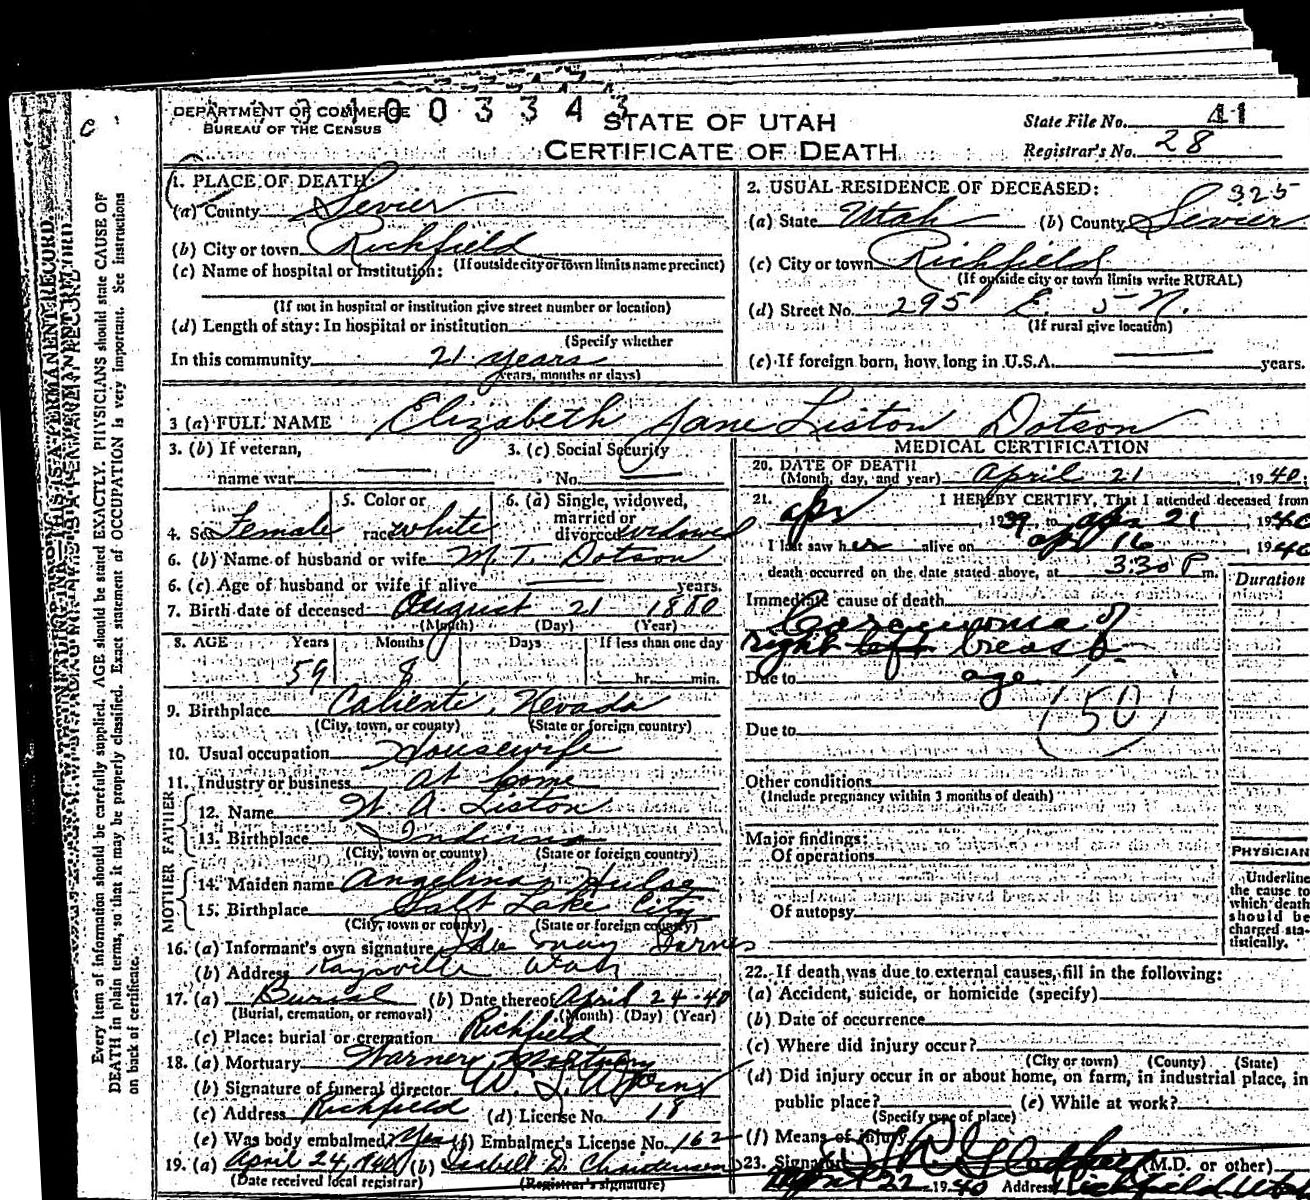 1003343
DEPARTMENT OF COMMERCE
BUREAU OF THE CENSUS
STATE OF UTAH
CERTIFICATE OF DEATH
State File No. 41
Registrar's No. 28
1. PLACE OF DEATH:
(a) County Sevier
(b) City or town Richfield
(If outside city or town limits name precinct)
(c) Name of hospital or institution:
(If not in hospital or institution give street number or location)
(d) Length of stay: In hospital or institution
(Specify whether
In this community 21 years
years, months or days)
2. USUAL RESIDENCE OF DECEASED: 325
(a) State Utah (b) County Sevier
(c) City or town Richfield
(If outside city or town limits write RURAL)
(d) Street No. 295 E. 5 N.
(If rural give location)
(e) If foreign born, how long in U.S.A. years.
3 (a) FULL NAME Elizabeth Jane Liston Dotson
3. (b) If veteran, 3. (c) Social Security
name war No.
4. Sex Female 5. Color or race white 6. (a) Single, widowed, married or divorced widowed
6. (b) Name of husband or wife M. T. Dotson
6. (c) Age of husband or wife if alive years.
7. Birth date of deceased August 21 1880
(Month) (Day) (Year)
8. AGE Years Months Days If less than one day
59 8 hr. min.
9. Birthplace Caliente, Nevada
(City, town, or county) (State or foreign country)
10. Usual occupation Housewife
11. Industry or business at home
FATHER
12. Name W. A. Liston
13. Birthplace Indiana
(City, town or county) (State or foreign country)
MOTHER
14. Maiden name Angelina Hulse
15. Birthplace Salt Lake City
(City, town or county) (State or foreign country)
16. (a) Informant's own signature May
(b) Address Kaysville Utah
17. (a) Burial (b) Date thereof April 24-40
(Burial, cremation, or removal) (Month) (Day) (Year)
(c) Place: burial or cremation Richfield
18. (a) Mortuary Warner Mortuary
(b) Signature of funeral director W. L.
(c) Address Richfield (d) License No. 18
(e) Was body embalmed? Yes (f) Embalmer's License No. 162
19. (a) April 24, 1940 (b) D. Christensen
(Date received local registrar) (Registrar's signature)
MEDICAL CERTIFICATION
20. DATE OF DEATH
(Month, day, and year) April 21, 1940;
21. I HEREBY CERTIFY, That I attended deceased from
Apr, 1939, to Apr 21, 1940
I last saw her alive on Ap 16, 1940
death occurred on the date stated above, at 3:30 P m.
Duration
Immediate cause of death
Carcinoma of
right left breast
Due to age
(50)
Due to
Other conditions
(Include pregnancy within 3 months of death)
Major findings:
Of operations
Of autopsy
PHYSICIAN
Underline
the cause to
which death
should be
charged sta-
tistically.
22. If death was due to external causes, fill in the following:
(a) Accident, suicide, or homicide (specify)
(b) Date of occurrence
(c) Where did injury occur?
(City or town) (County) (State)
(d) Did injury occur in or about home, on farm, in industrial place, in
public place? (e) While at work?
(Specify type of place)
(f) Means of injury
23. Signature (M.D. or other)
22 1940 Address Richfield Utah
Every item of information should be carefully supplied. AGE should be stated EXACTLY. PHYSICIANS should state CAUSE OF
DEATH in plain terms, so that it may be properly classified. Exact statement of OCCUPATION is very important. See instructions
on back of certificate.